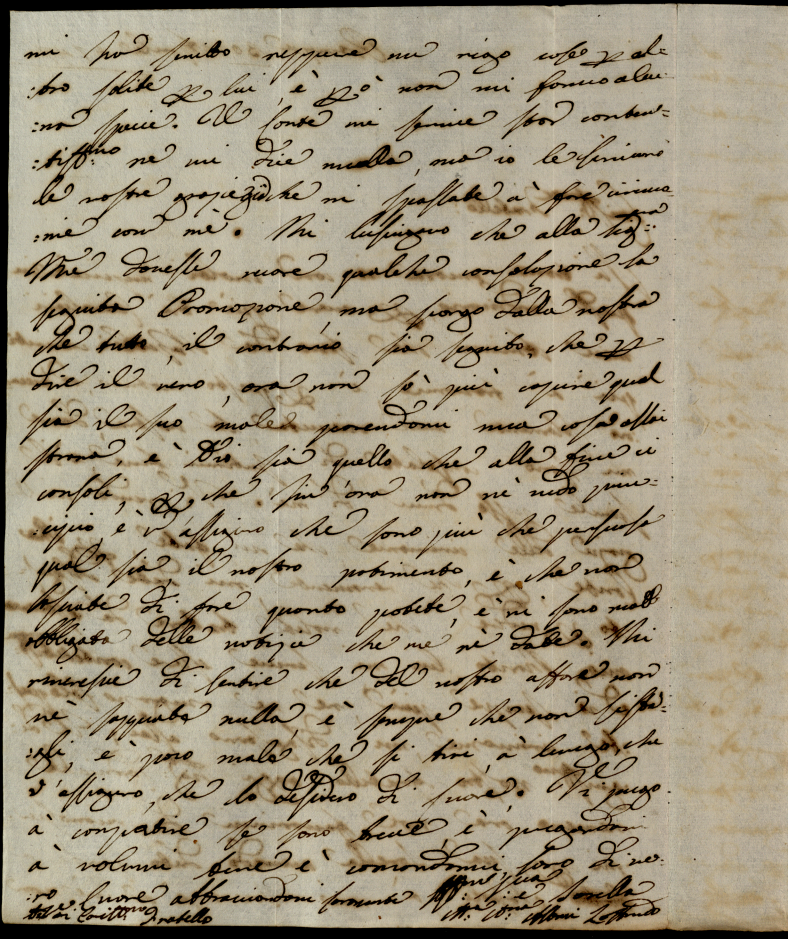 mi ha scritto neppure un rigo cosa p al-
:tro solita p lui, è p ò non mi fanno alcu-
:na specie. Il Conte mi scrive star conten-
:tiss:mo ne mi dice nulla, ma io le scriverò
le vostre grazie che vi spassate à fare
:nie con mè. Mi lusingavo che alla Sig:ra
M.e dovesse recare qualche consolazione la
seguita Promozione, ma scorgo dalla vostra
che tutto il contrario sia seguito, che p
dire il vero, ora non sò più capire qual
sia il suo male parendomi una cosa assai
strana, è Dio sia quello che alla fine ci
consoli, p che sin' ora non nè vedo prin-
:cipio, è v'assicuro che sono più che persuasa
qual sia il vostro patimento, è che non
lasciate di fare quanto potete, è vi sono molto
obbligata delle notizie che me nè date. Mi
rincresce di sentire che del nostro affare non
nè sappiate nulla, è purche che non
è poco male che si tiri à lungo, che
v'assicuro, che lo desidero di cuore. Vi prego
à compatire se sono breve, è pregandovi
à volermi bene è comandarmi sono di ve-
:ro Cuore abbracciandovi caramente
Sorella
Fratello Albani